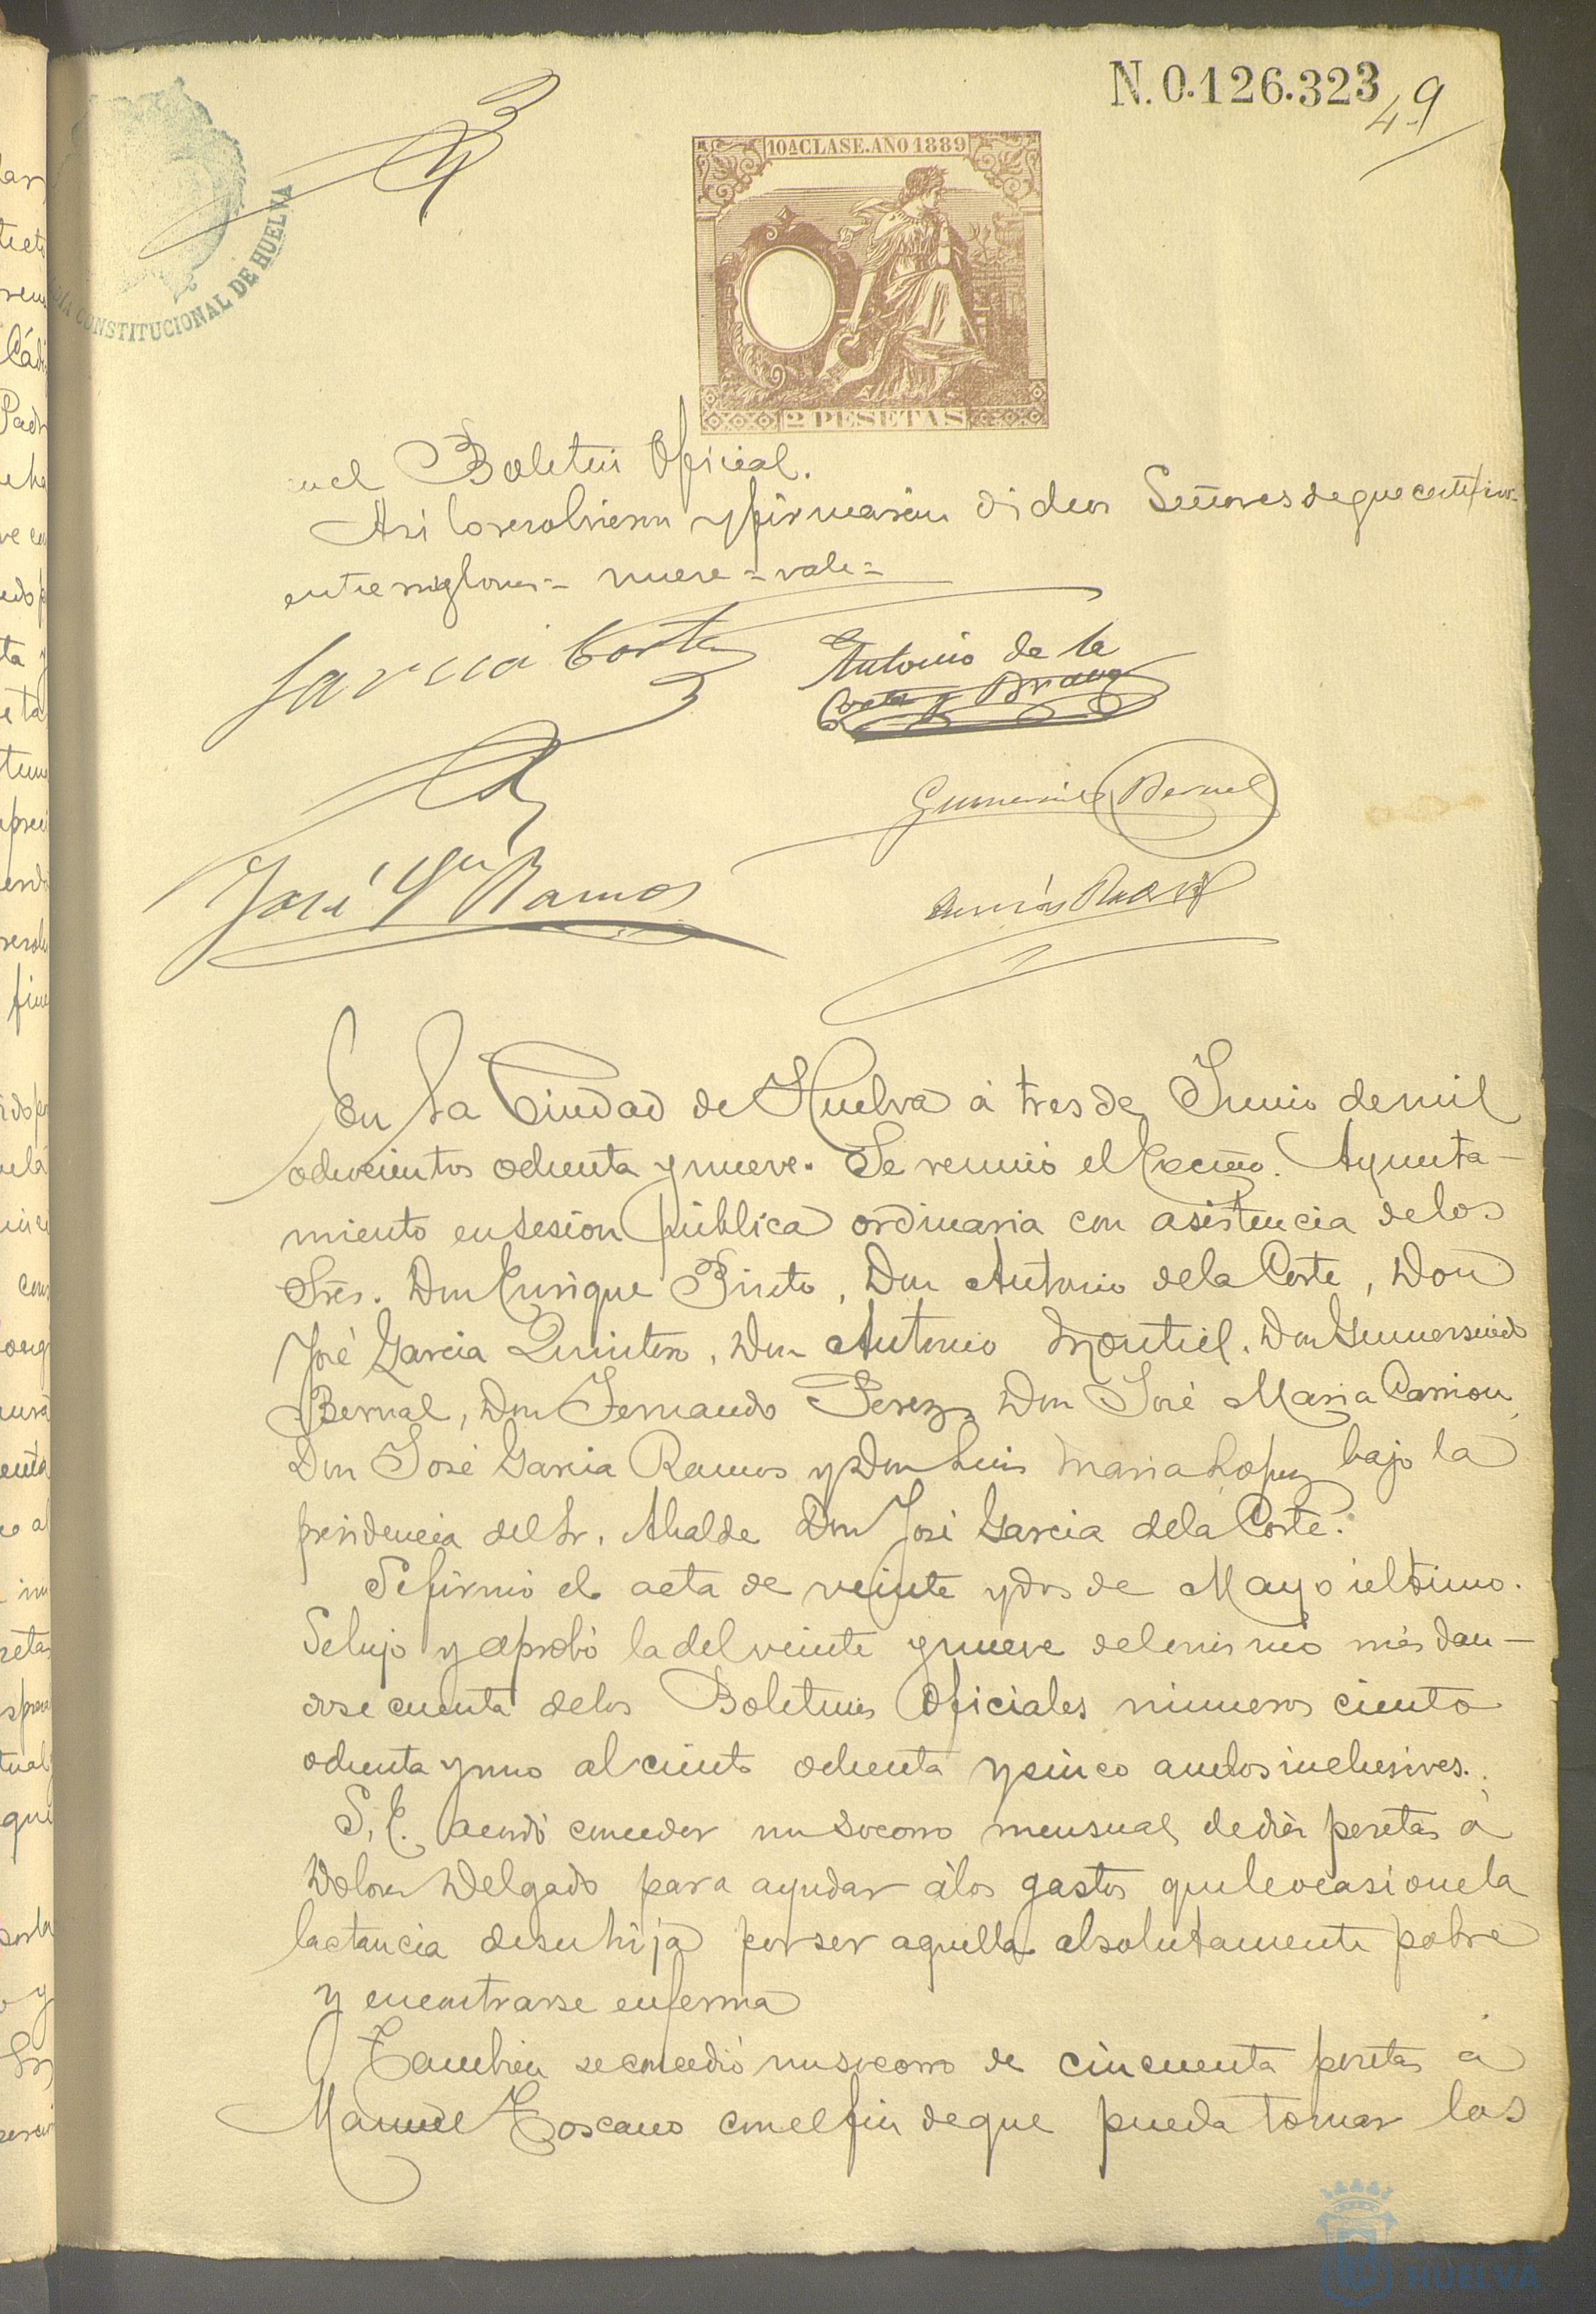 N. 0.126.323
49
10ª CLASE. AÑO 1889
2 PESETAS
CONSTITUCIONAL DE HUELVA
en el Boletin Oficial.
Asi lo resolvieron y firmaron dichos Señores de que certifico=
entre renglones= nueve= vale=
Garcia Corte
Antonio de la
Corte y
Gumersindo Bernal
José Gª Ramos
En la Ciudad de Huelva á tres de Junio de mil
ochocientos ochenta y nueve. Se reunió el Excmo. Ayunta-
miento en sesion pública ordinaria con asistencia de los
Sres. Don Enrique Pinto, Don Antonio de la Corte, Don
José Garcia Quintero, Don Antonio Montiel. Don Gumersindo
Bernal, Don Fernando Perez, Don José Maria Carrion,
Don José Garcia Ramos y Don Luis Maria Lopez bajo la
presidencia del Sr. Alcalde Don José Garcia de la Corte.
Se firmó el acta de veinte y dos de Mayo último.
Se leyo y aprobó la del veinte y nueve del mismo mes dan-
dose cuenta de los Boletines Oficiales números ciento
ochenta y uno al ciento ochenta y cinco ambos inclusives.
S. E. acordó conceder un socorro mensual de diez pesetas á
Dolores Delgado para ayudar á los gastos que le ocasione la
lactancia de su hija por ser aquella absolutamente pobre
y encontrarse enferma
Tambien se concedió un socorro de cincuenta pesetas á
Manuel Toscano con el fin de que pueda tomar los
HUELVA